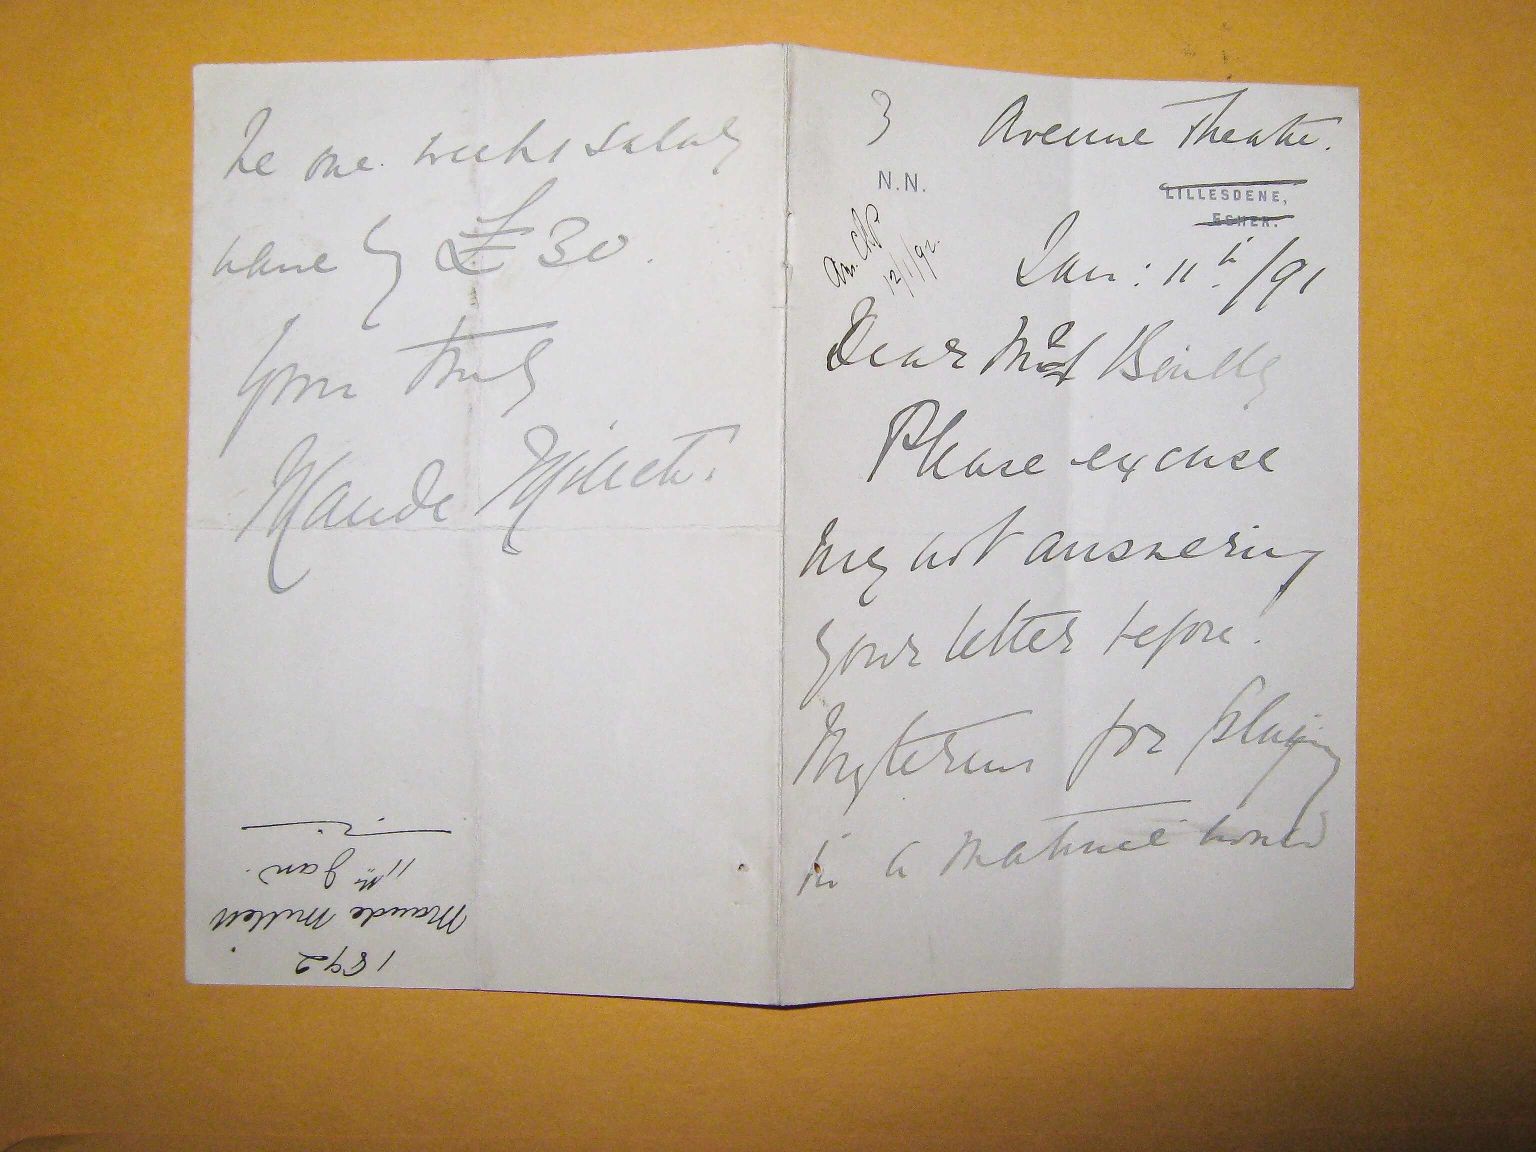 3
Avenue Theatre.
N.N.
LILLESDENE,
ESHER.
Jan: 11th/91
12/1/92.
Dear Mr
Please excuse
my not answering
your letter before.
My terms for playing
in a matinée would
be one weeks salary
namely £30.
Yours truly
Maude Millett.
1892
Maude Millett
11th Jan.